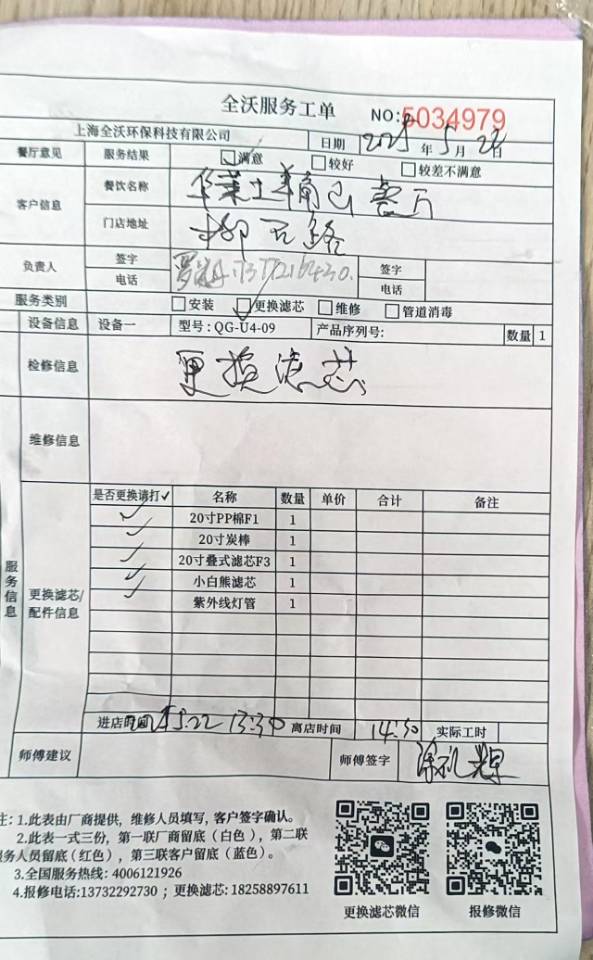 全沃服务工单
NO:5034979
上海全沃环保科技有限公司 日期 2025年5月22日
餐厅意见 服务结果 ☑满意 □较好 □较差不满意
客户信息 餐饮名称
门店地址
负责人 签字 签字
电话 电话
服务类别 □安装 ☑更换滤芯 □维修 □管道消毒
设备信息 设备一 型号:QG-U4-09 产品序列号: 数量 1
检修信息 更换滤芯
维修信息
服务信息
更换滤芯/配件信息
是否更换请打✓ 名称 数量 单价 合计 备注
✓ 20寸PP棉F1 1
✓ 20寸炭棒 1
✓ 20寸叠式滤芯F3 1
✓ 小白熊滤芯 1
✓ 紫外线灯管 1
进店时间 13:30 离店时间 14:30 实际工时
师傅建议 师傅签字
注:1.此表由厂商提供,维修人员填写,客户签字确认。
2.此表一式三份,第一联厂商留底(白色),第二联
服务人员留底(红色),第三联客户留底(蓝色)。
3.全国服务热线:4006121926
4.报修电话:13732292730;更换滤芯:18258897611
更换滤芯微信 报修微信